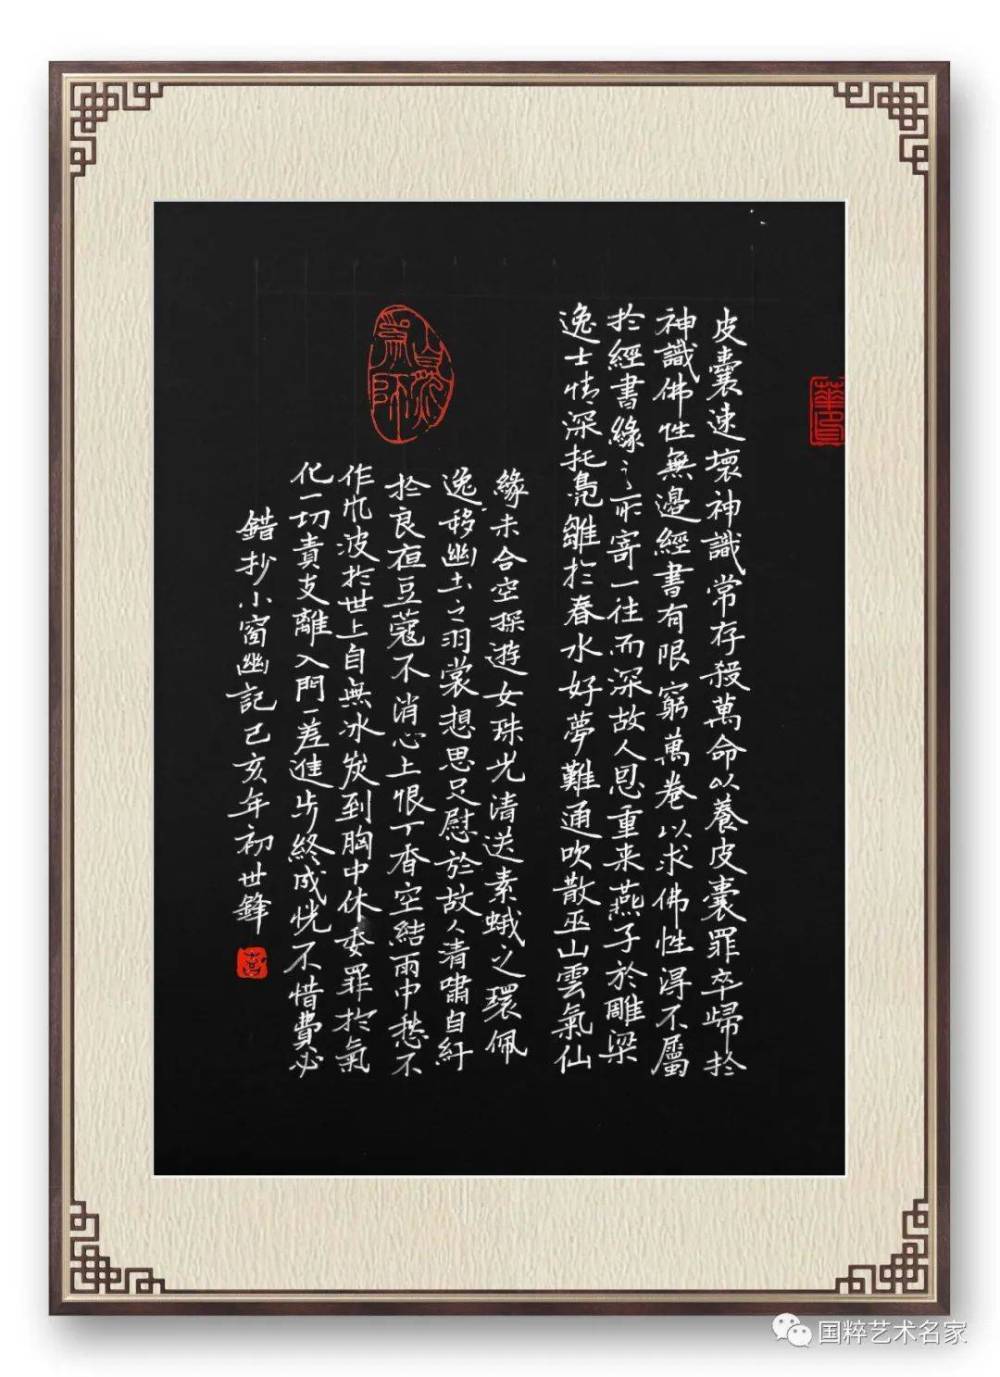 皮囊速壞神識常存殺萬命以養皮囊罪卒歸扵
神識佛性無邊經書有限窮萬卷以求佛性淂不屬
扵經書緣之所寄一往而深故人恩重来燕子於雕梁
逸士情深托鳧雛扵春水好夢難通吹散巫山雲氣仙
緣未合空探遊女珠光清送素蛾之環佩
逸移幽士之羽裳想思足慰於故人清嘯自紆
扵良夜豆蔻不消心上恨丁香空結雨中愁不
作風波扵世上自無冰炭到胸中休委罪扵氣
化一切責支離入門一差進步終成恍不惜費必
錯抄小窗幽記己亥年初世鋒
国粹艺术名家